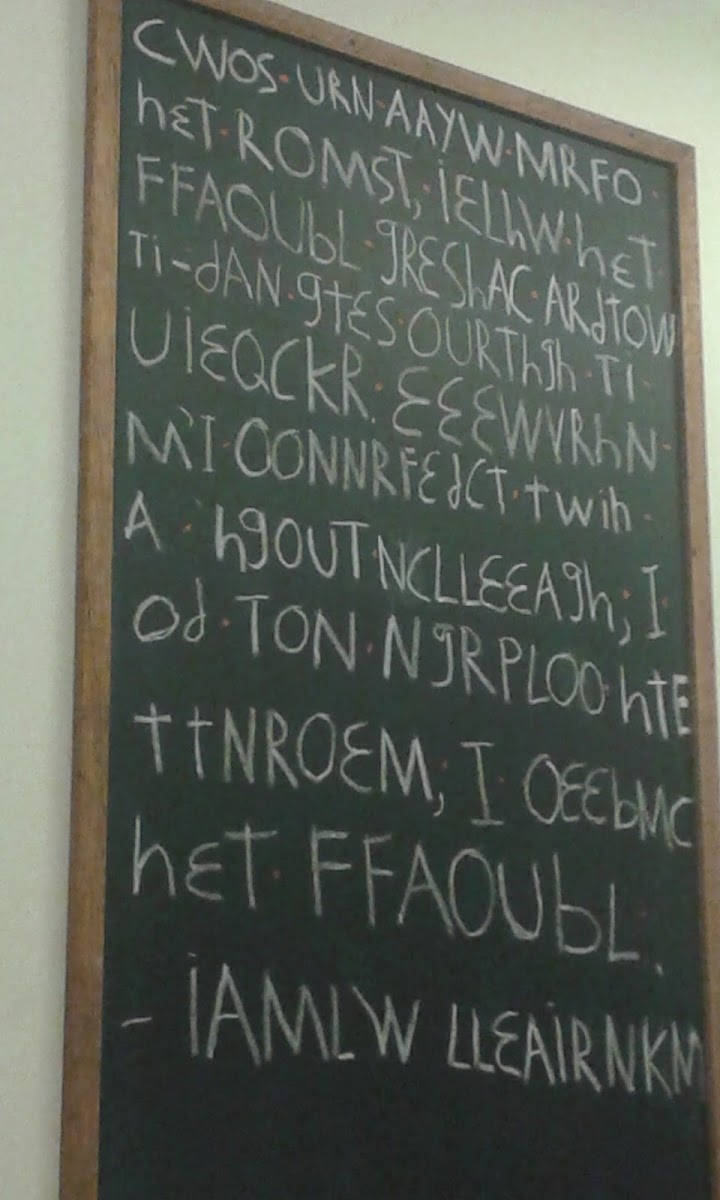 CWOS·URN·AAYW·MRFO·
hET·ROMST,·iELhW·hET·
FFAOUbL·gREShAC·ARdTOW
Ti-dAN·gtES·OURThgh·Ti·
UiEQCKR.·EEEWVRhN·
M'I·OONNRFEdCT·twih·
A·hgOUT·NCLLEEAgh,·I·
Od·TON·NgRPLOO·htE
ttNROEM,·I·OEEbMC
hET·FFAOUbL.
- iAMLW LLEAiRNKM